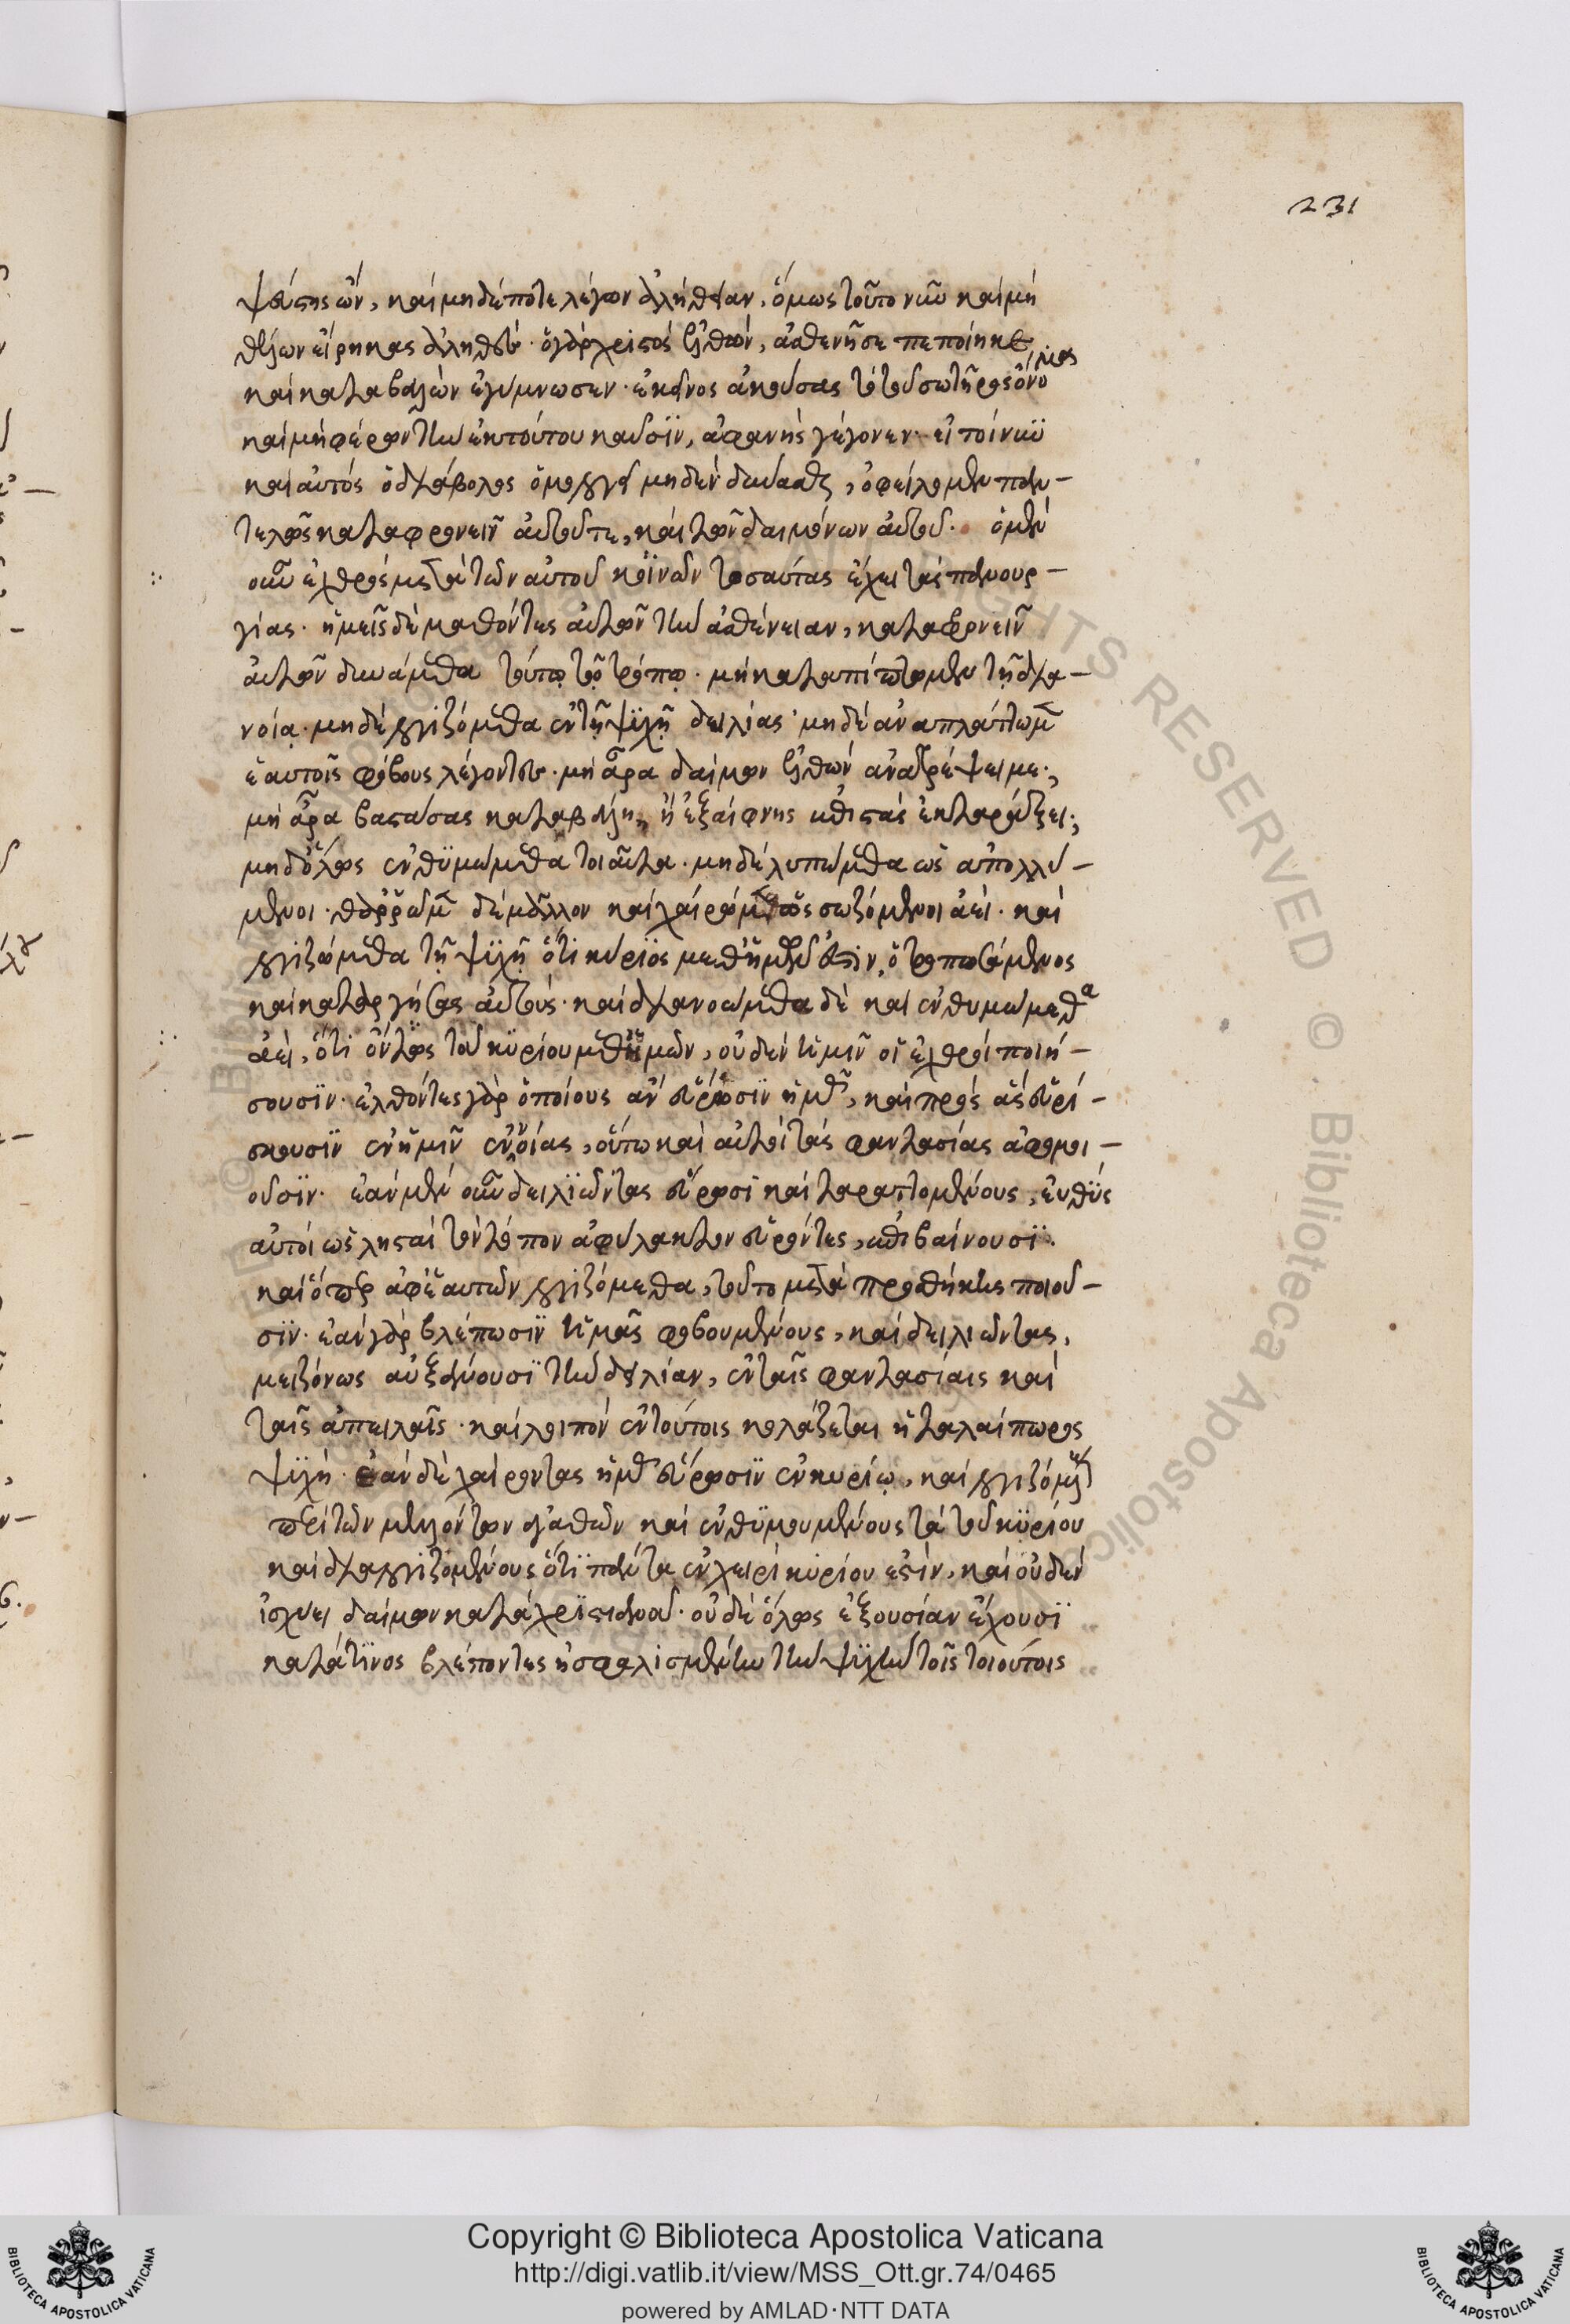 231
ψεύστης ὢν, καὶ μηδέποτε λέγων ἀλήθειαν, ὅμως τοῦτο νῦν καὶ μὴ
θέλων εἴρηκας ἀληθές· ὁ γὰρ χριστὸς ἐλθὼν, ἀσθενῆ σε πεποίηκε,
καὶ καταβαλὼν ἐγύμνωσεν· ἐκεῖνος ἀκούσας τὸ τοῦ σωτῆρος ὄνομα
καὶ μὴ φέρων τὴν ἐκ τούτου καῦσϊν, ἀφανὴς γέγονεν· εἰ τοίνυν
καὶ αὐτὸς ὁ διάβολος ὁμολογεῖ μηδὲν δύνασθαι, ὀφείλομεν παν-
τελῶς καταφρονεῖν αὐτοῦ τε, καὶ τῶν δαιμόνων αὐτοῦ. ὁ μὲν
οὖν ἐχθρὸς μετὰ τῶν αὐτοῦ κϋνῶν τοσαύτας ἔχει τὰς πανουρ-
γίας· ἡμεῖς δὲ μαθόντες αὐτῶν τὴν ἀσθένειαν, καταφρονεῖν
αὐτῶν δυνάμεθα τούτῳ τῷ τρόπῳ· μὴ καταπίπτωμεν τῇ δια-
νοίᾳ· μηδὲ λογιζώμεθα ἐν τῇ ψϋχῇ δειλίας· μηδὲ ἀναπλάττωμεν
ἑαυτοῖς φόβους λέγοντες· μὴ ἄρα δαίμων ἐλθὼν ἀνατρέψει με·,
μὴ ἄρα βαστάσας καταβάλῃ, ἢ ἐξαίφνης ἐπιστὰς ἐκταράξει·,
μηδ᾽ ὅλως ἐνθϋμώμεθα τοιαῦτα· μηδὲ λυπώμεθα ὡς ἀπολλύ-
μενοι· θαρρῶμεν δὲ μᾶλλον καὶ χαίρωμεν ὡς σωζόμενοι ἀεί· καὶ
λογιζώμεθα τῇ ψϋχῇ ὅτι κύριος μεθ᾽ ἡμῶν ἐστιν, ὁ τροπωσάμενος
καὶ καταργήσας αὐτούς· καὶ διανοώμεθα δὲ καὶ ἐνθυμώμεθα
ἀεὶ, ὅτι ὄντως τοῦ κϋρίου μεθ᾽ ἡμῶν, οὐδὲν ἡμῖν οἱ ἐχθροὶ ποιή-
σουσϊν· ἐλθόντες γὰρ ὁποίους ἂν εὕρωσϊν ἡμᾶς, καὶ πρὸς ἃς εὑρί-
σκουσϊν ἐν ἡμῖν ἐννοίας, οὕτω καὶ αὐτοὶ τὰς φαντασίας ἀφομοι-
οῦσϊν· ἐὰν μὲν οὖν δειλϊῶντας εὕρωσϊ καὶ ταραττομένους, εὐθϋς
αὐτοὶ ὡς λησταὶ τὸν τόπον ἀφύλακτον εὑρόντες, ἐπιβαίνουσϊ.
καὶ ὅπερ ἀφ᾽ ἑαυτῶν λογιζόμεθα, τοῦτο μετὰ προσθήκης ποιοῦ-
σϊν· ἐὰν γὰρ βλέπωσϊν ἡμᾶς φοβουμένους, καὶ δειλιῶντας,
μειζόνως αὐξάνουσϊ τὴν δειλίαν, ἐν ταῖς φαντασίαις καὶ
ταῖς ἀπειλαῖς· καὶ λοιπὸν ἐν τούτοις κολάζεται ἡ ταλαίπωρος
ψϋχή· ἐὰν δὲ χαίροντας ἡμᾶς εὕρωσϊν ἐν κυρίῳ, καὶ λογιζομένους
περὶ τῶν μελλόντων ἀγαθῶν καὶ ἐνθϋμουμένους τὰ τοῦ κϋρίου
καὶ διαλογιζομένους ὅτι πάντα ἐν χειρὶ κυρίου ἐστὶν, καὶ οὐδὲν
ἰσχύει δαίμων κατὰ χρϊστιανοῦ· οὐδὲ ὅλως ἐξουσίαν ἔχουσϊ
κατά τϊνος βλέποντες ἠσφαλισμένην τὴν ψϋχὴν τοῖς τοιούτοις
Copyright © Biblioteca Apostolica Vaticana
http://digi.vatlib.it/view/MSS_Ott.gr.74/0465
powered by AMLAD·NTT DATA